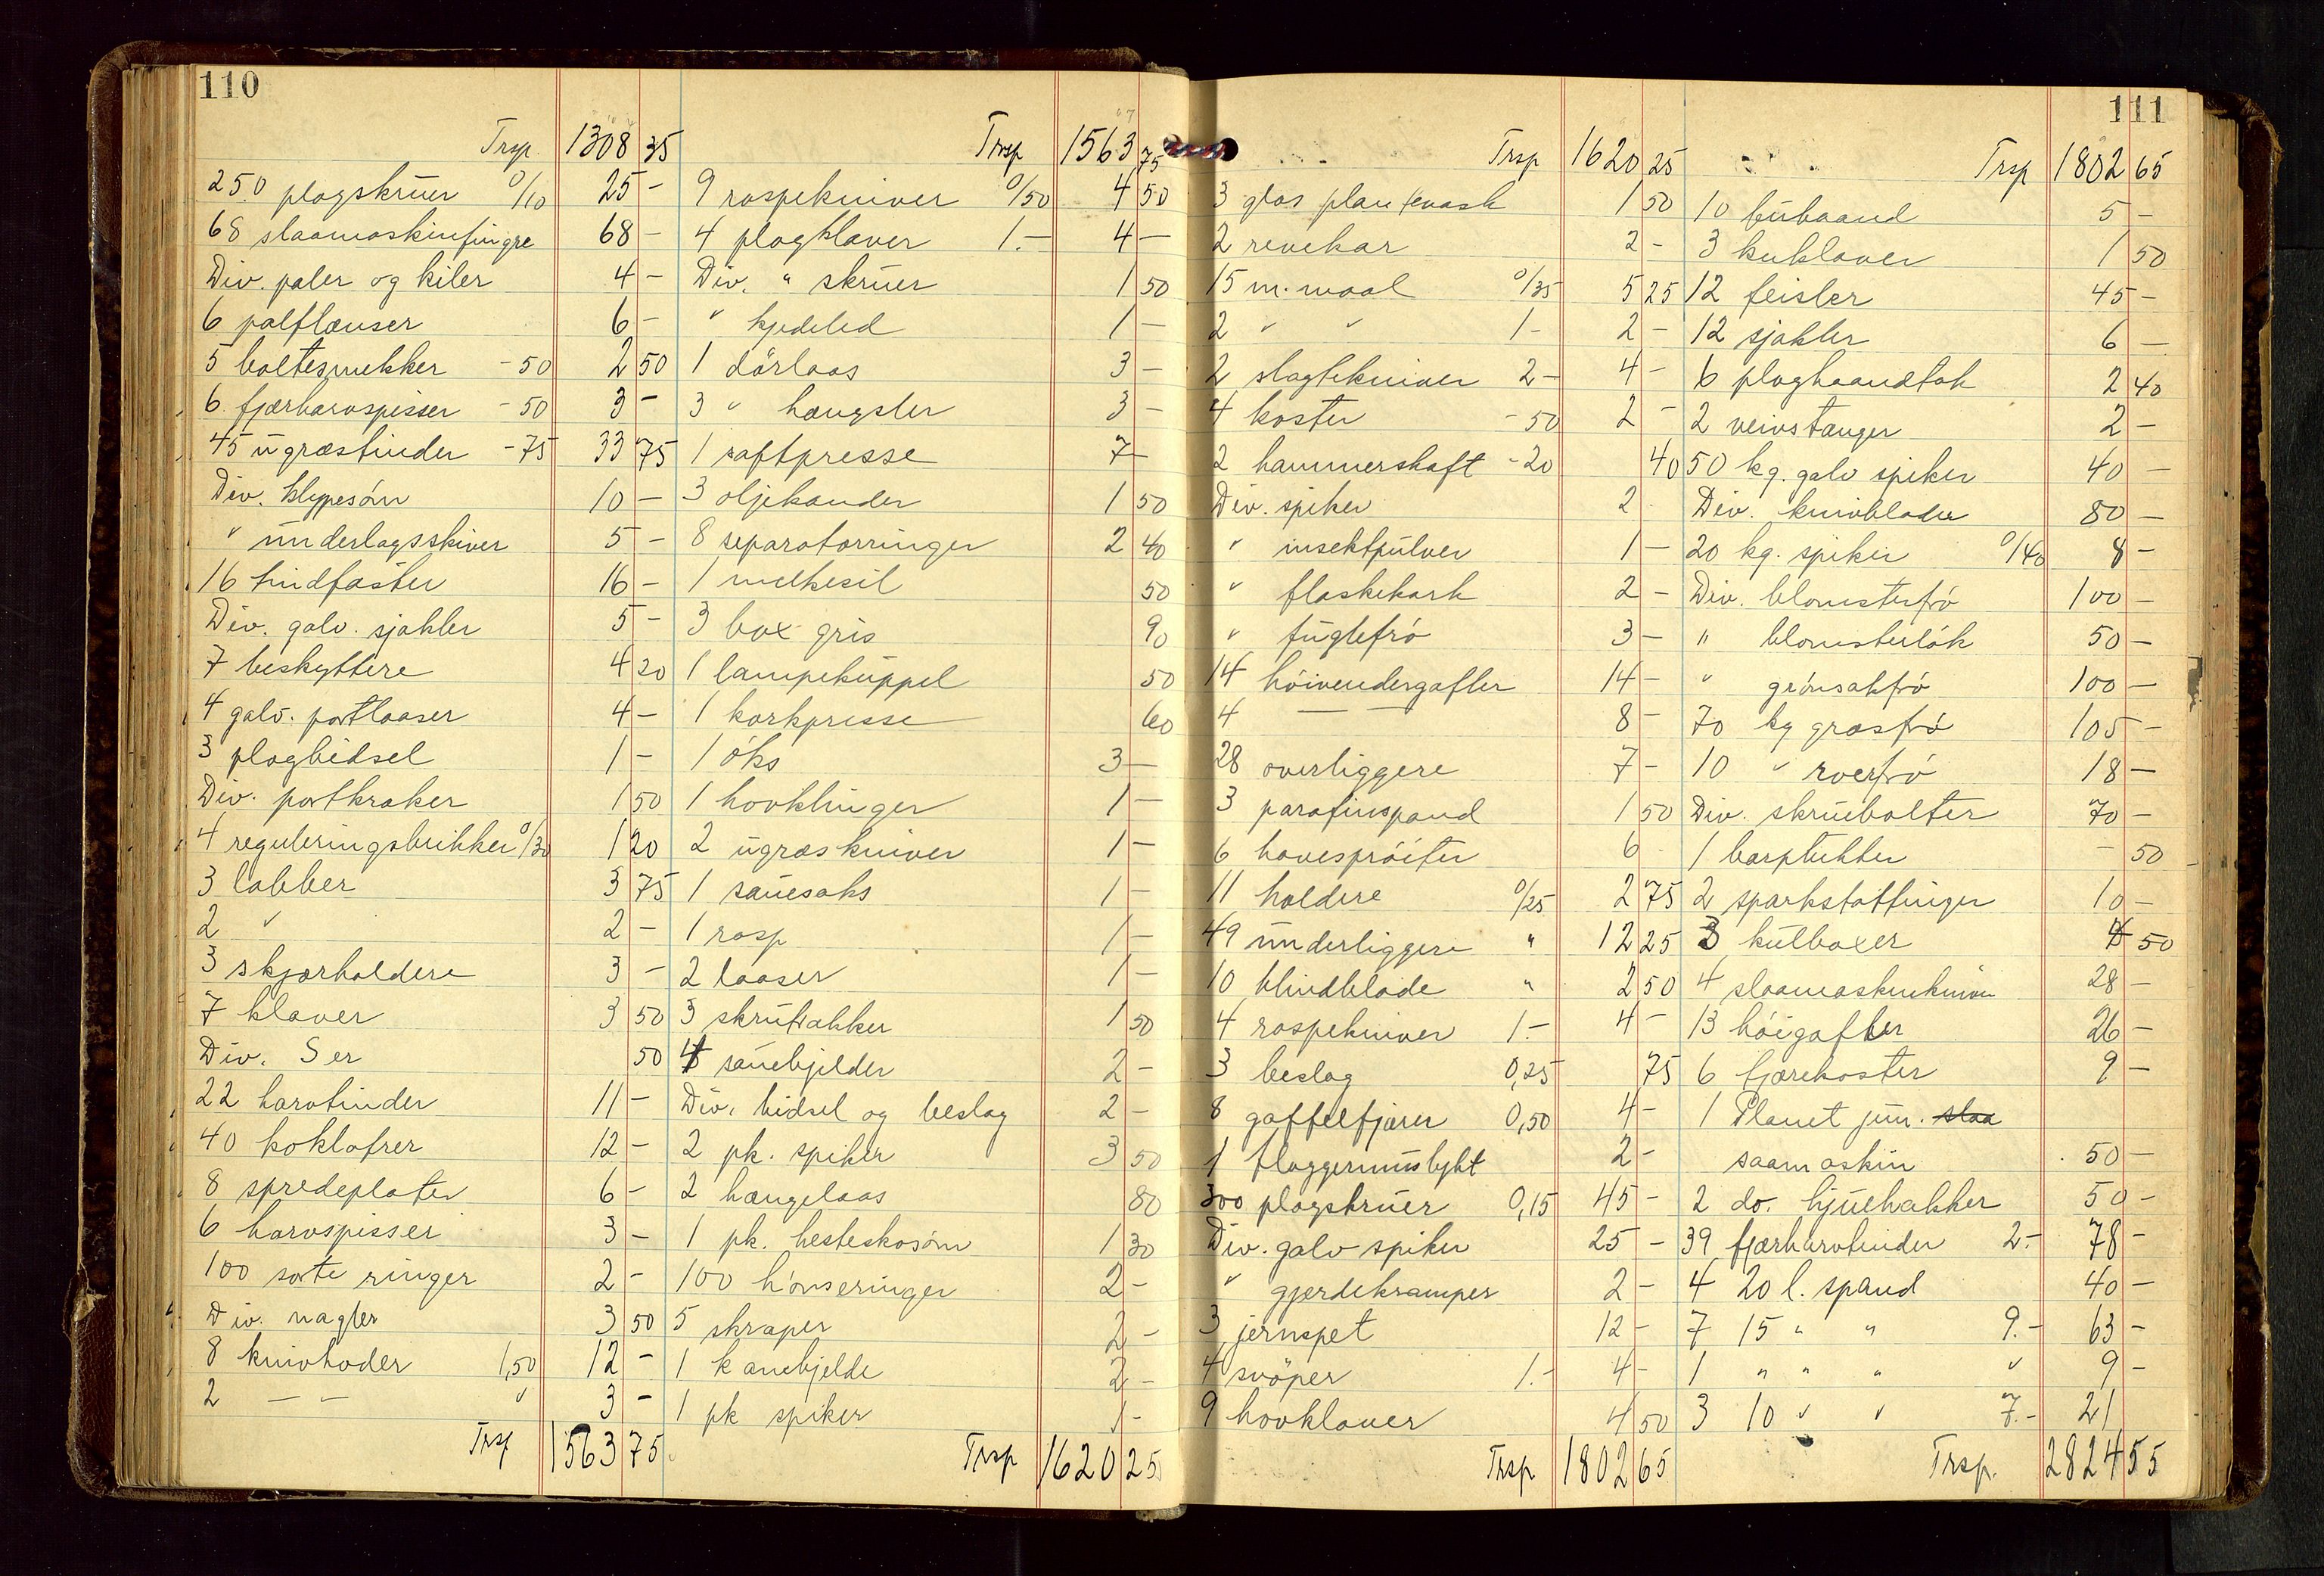 110
Trsp. 1308 35
250 plogskruer 0/10 25 -
68 slaamaskinfingre 68 -
Div. paler og kiler 4 -
6 palflanser 6 -
5 boltesmekker - 50 2 50
6 fjærharvspisser - 50 3 -
45 ugræstinder - 75 33 75
Div. klyppesöm 10 -
" underlagsskiver 5 -
16 tindfæster 16 -
Div. galv. sjakler 5 -
7 beskyttere 4 20
4 galv. portlaaser 4 -
3 plogbidsel 1 -
Div. portkraker 1 50
4 reguleringsbrikker 0/30 1 20
3 labber 3 75
2 " 2 -
3 skjærholdere 3 -
7 klaver 3 50
Div. S er 50
22 harvtinder 11 -
40 koklafrer 12 -
8 spredeplater 6 -
6 harvspisser 3 -
100 sorte ringer 2 -
Div. nagler 3 50
8 knivhoder 1,50 12 -
2 — — " 3 -
Trsp 1563 75
Trsp 1563 75
9 raspekniver 0/50 4 50
4 plogklaver 1.- 4 -
Div. " skruer 1 50
" kjedeled 1 -
1 dörlaas 3 -
3 " hængsler 3 -
1 saftpresse 7 -
3 oljekander 1 50
8 separatorringer 2 40
1 melkesil 50
3 box gris 90
1 lampekuppel 50
1 korkpresse 60
1 öks 3 -
1 hovklinger 1 -
2 ugræskniver 1 -
1 sauesaks 1 -
1 rasp 1 -
2 laaser 1 -
3 skrutrakker 1 50
4 sauebjelder 2 -
Div. bidsel og beslag 2 -
2 pk. spiker 3 50
2 hængelaas 80
1 pk. hesteskosöm 1 30
100 hönseringer 2 -
5 skraper 2 -
1 kanebjelde 2 -
1 pk spiker 1 -
Trsp 1620 25
111
Trsp 1620 25
3 glas plantevask 1 50
2 revekar 2 -
15 m. maal 0/35 5 25
2 " " 1 - 2 -
2 slagtekniver 2 - 4 -
4 koster - 50 2 -
2 hammershaft - 20 40
Div. spiker 2
" insektpulver 1 -
" flaskekork 2 -
" fuglefrö 3 -
14 höivendergafler 14 -
4 — — 8 -
28 overliggere 7 -
3 parafinspand 1 50
6 havespröiter 6
11 holdere 0/25 2 75
49 underliggere " 12 25
10 blindblade " 2 50
4 raspekniver 1.- 4 -
3 beslag 0,25 75
8 gaffelfjærer 0,50 4 -
1 flaggermuslykt 2 -
300 plogskruer 0,15 45 -
Div. galv spiker 25 -
" gjerdekramper 2 -
3 jernspet 12 -
4 svöper 1.- 4 -
9 hovklaver 4 50
Trsp 1802 65
Trsp 1802 65
10 bubaand 5 -
3 kuklaver 1 50
12 feisler 45 -
12 sjakler 6 -
6 ploghaandtak 2 40
2 veivstænger 2 -
50 kg. galv spiker 40 -
Div. knivblader 80 -
20 kg. spiker 0/40 8 -
Div. blomsterfrö 100 -
" blomsterlök 50 -
" grönsakfrö 100 -
70 kg græsfrö 105 -
10 " roerfrö 18 -
Div. skruebolter 70 -
1 bærplukker - 50
2 sparkstöttinger 10 -
3 kulboxer 4 50
4 slaamaskinkniver 28 -
13 höigafler 26 -
6 fjærekoster 9 -
1 Planet jun. slaa
saamaskin 50 -
2 do. hjulhakker 50 -
39 fjærharvtinder 2.- 78 -
4 20 l. spand 40 -
7 15 " " 9.- 63 -
1 " " " " 9 -
3 10 " " 7.- 21
Trsp. 2824 55